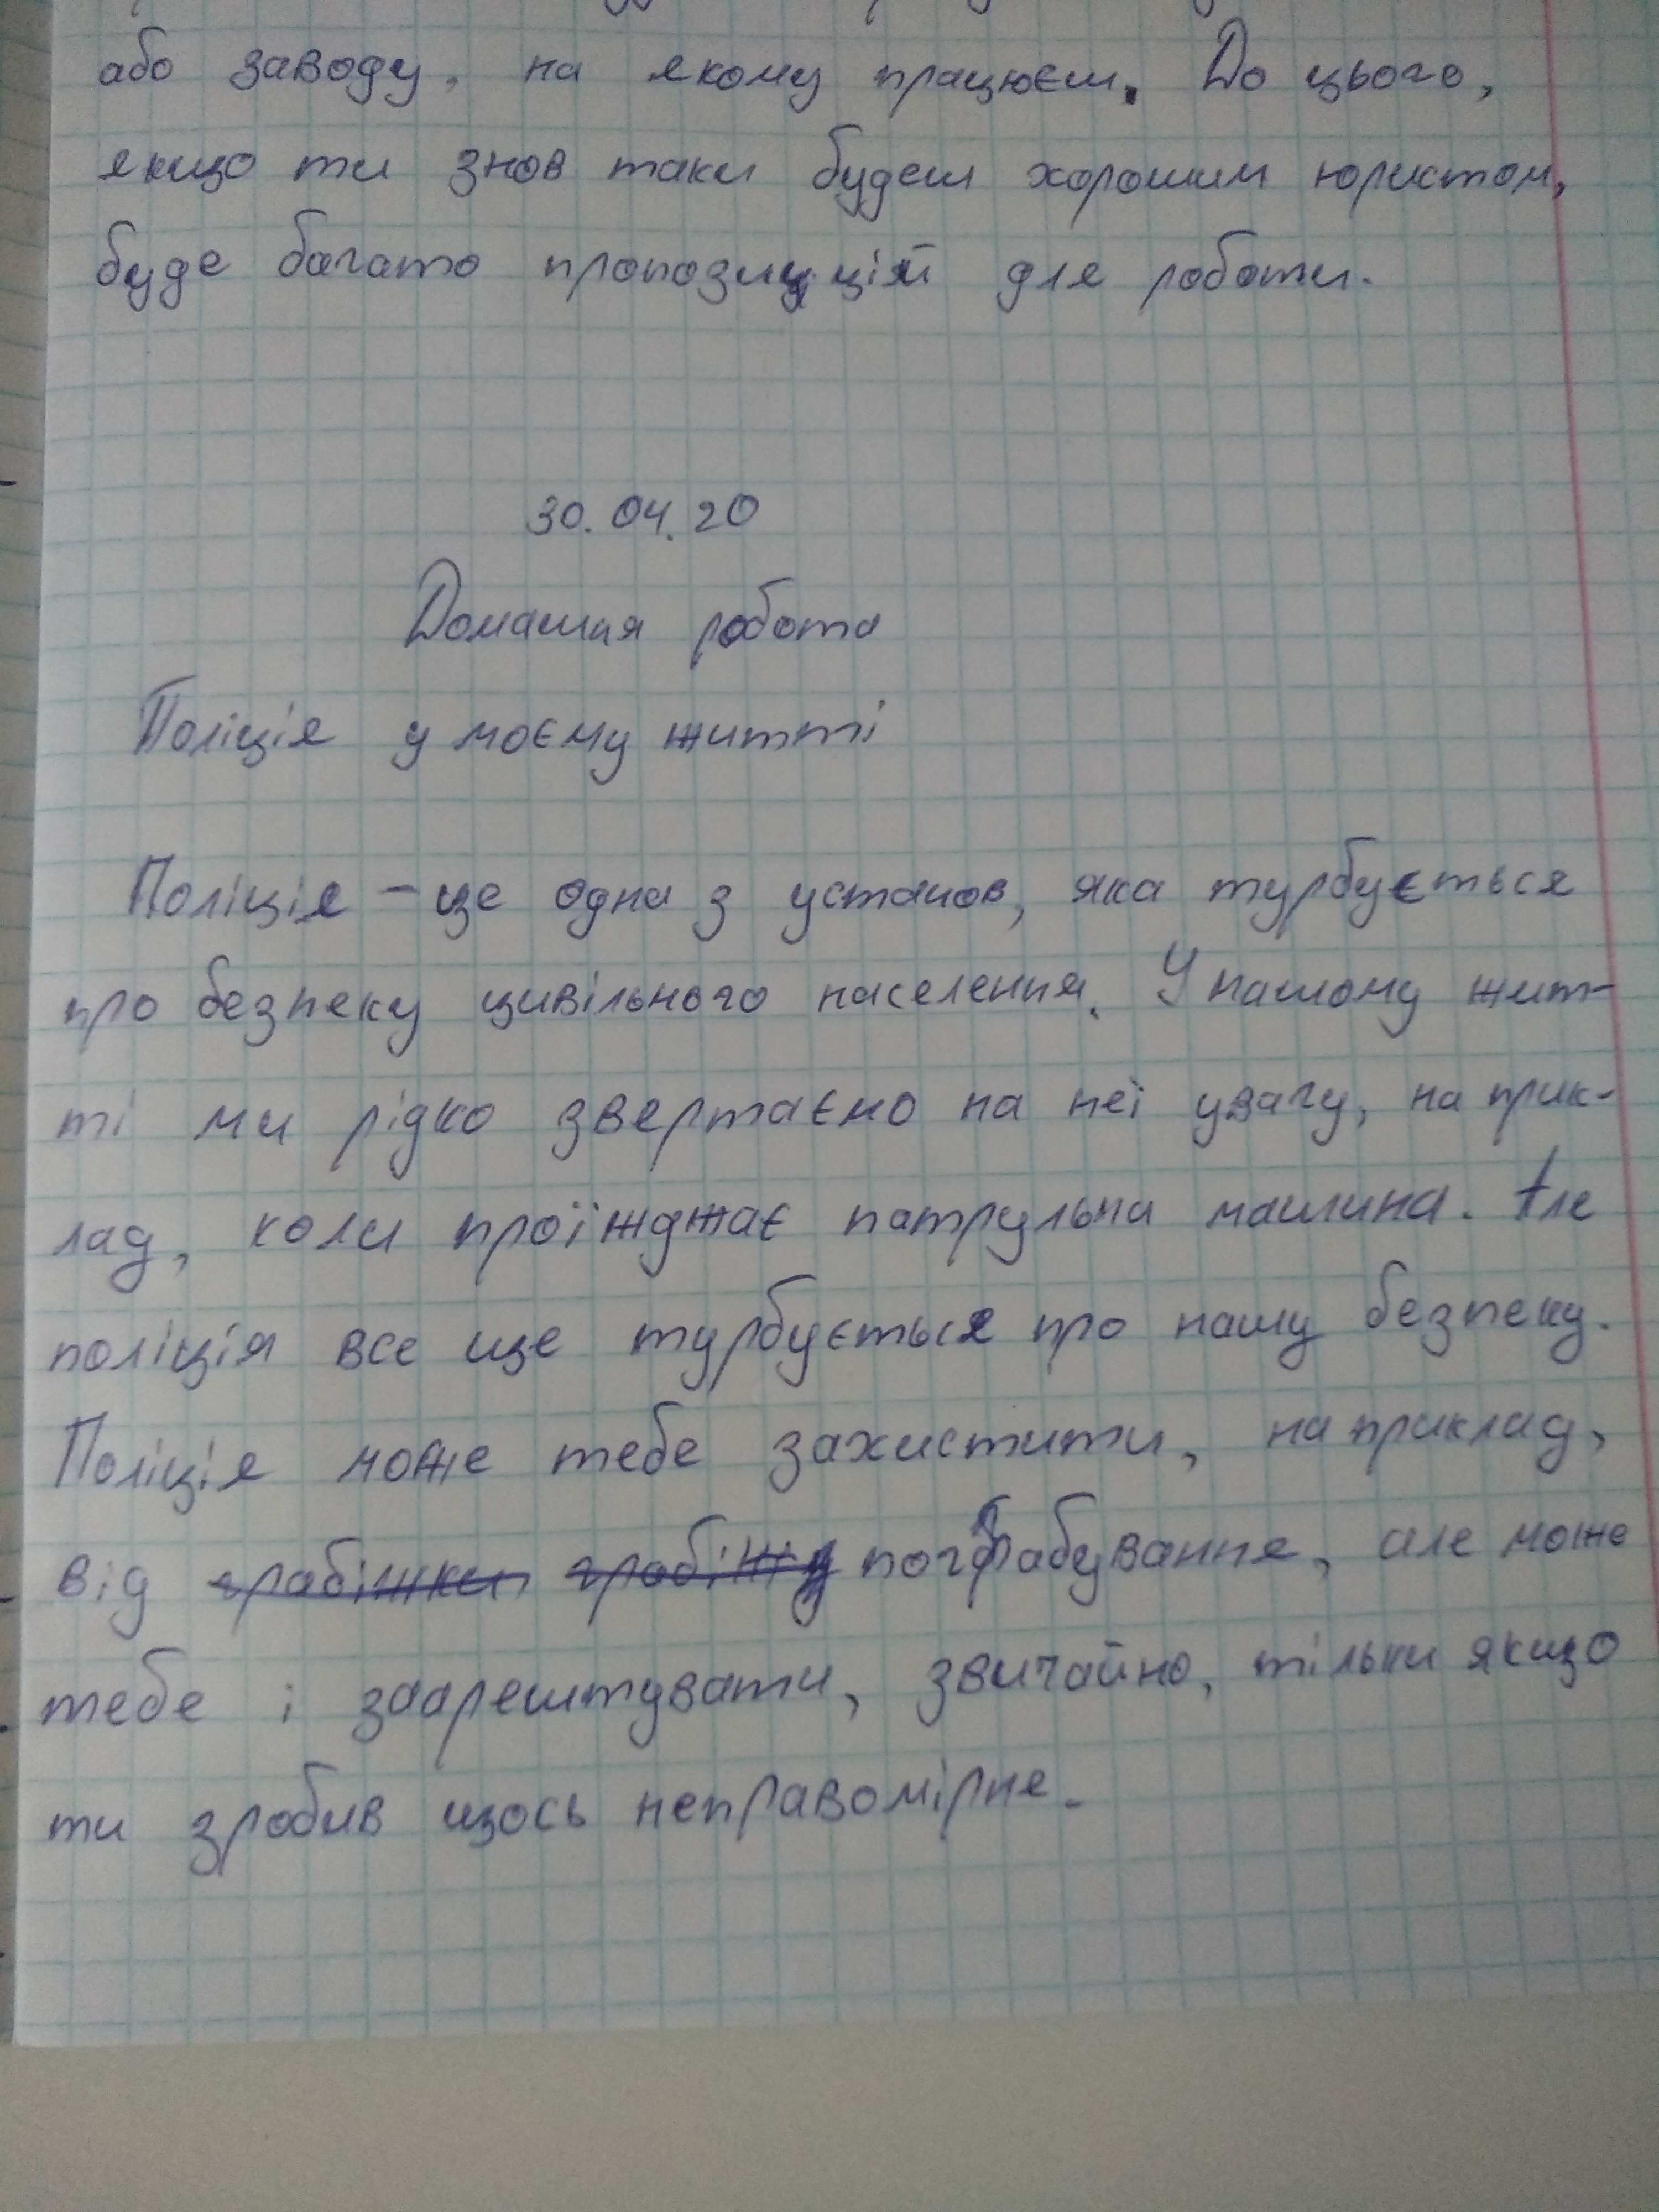 або заводу, на якому працюєш. До цього,
якщо ти знов таки будеш хорошим юристом,
буде багато пропозицій для роботи.
30.04.20
Домашня робота
Поліція у моєму житті
Поліція – це одна з установ, яка турбується
про безпеку цивільного населення. У нашому жит-
ті ми рідко звертаємо на неї увагу, на прик-
лад, коли проїжджає патрульна машина. Але
поліція все ще турбується про нашу безпеку.
Поліція може тебе захистити, на приклад,
від грабіжки грабіжу пограбування, але може
тебе і заарештувати, звичайно, тільки якщо
ти зробив щось неправомірне.